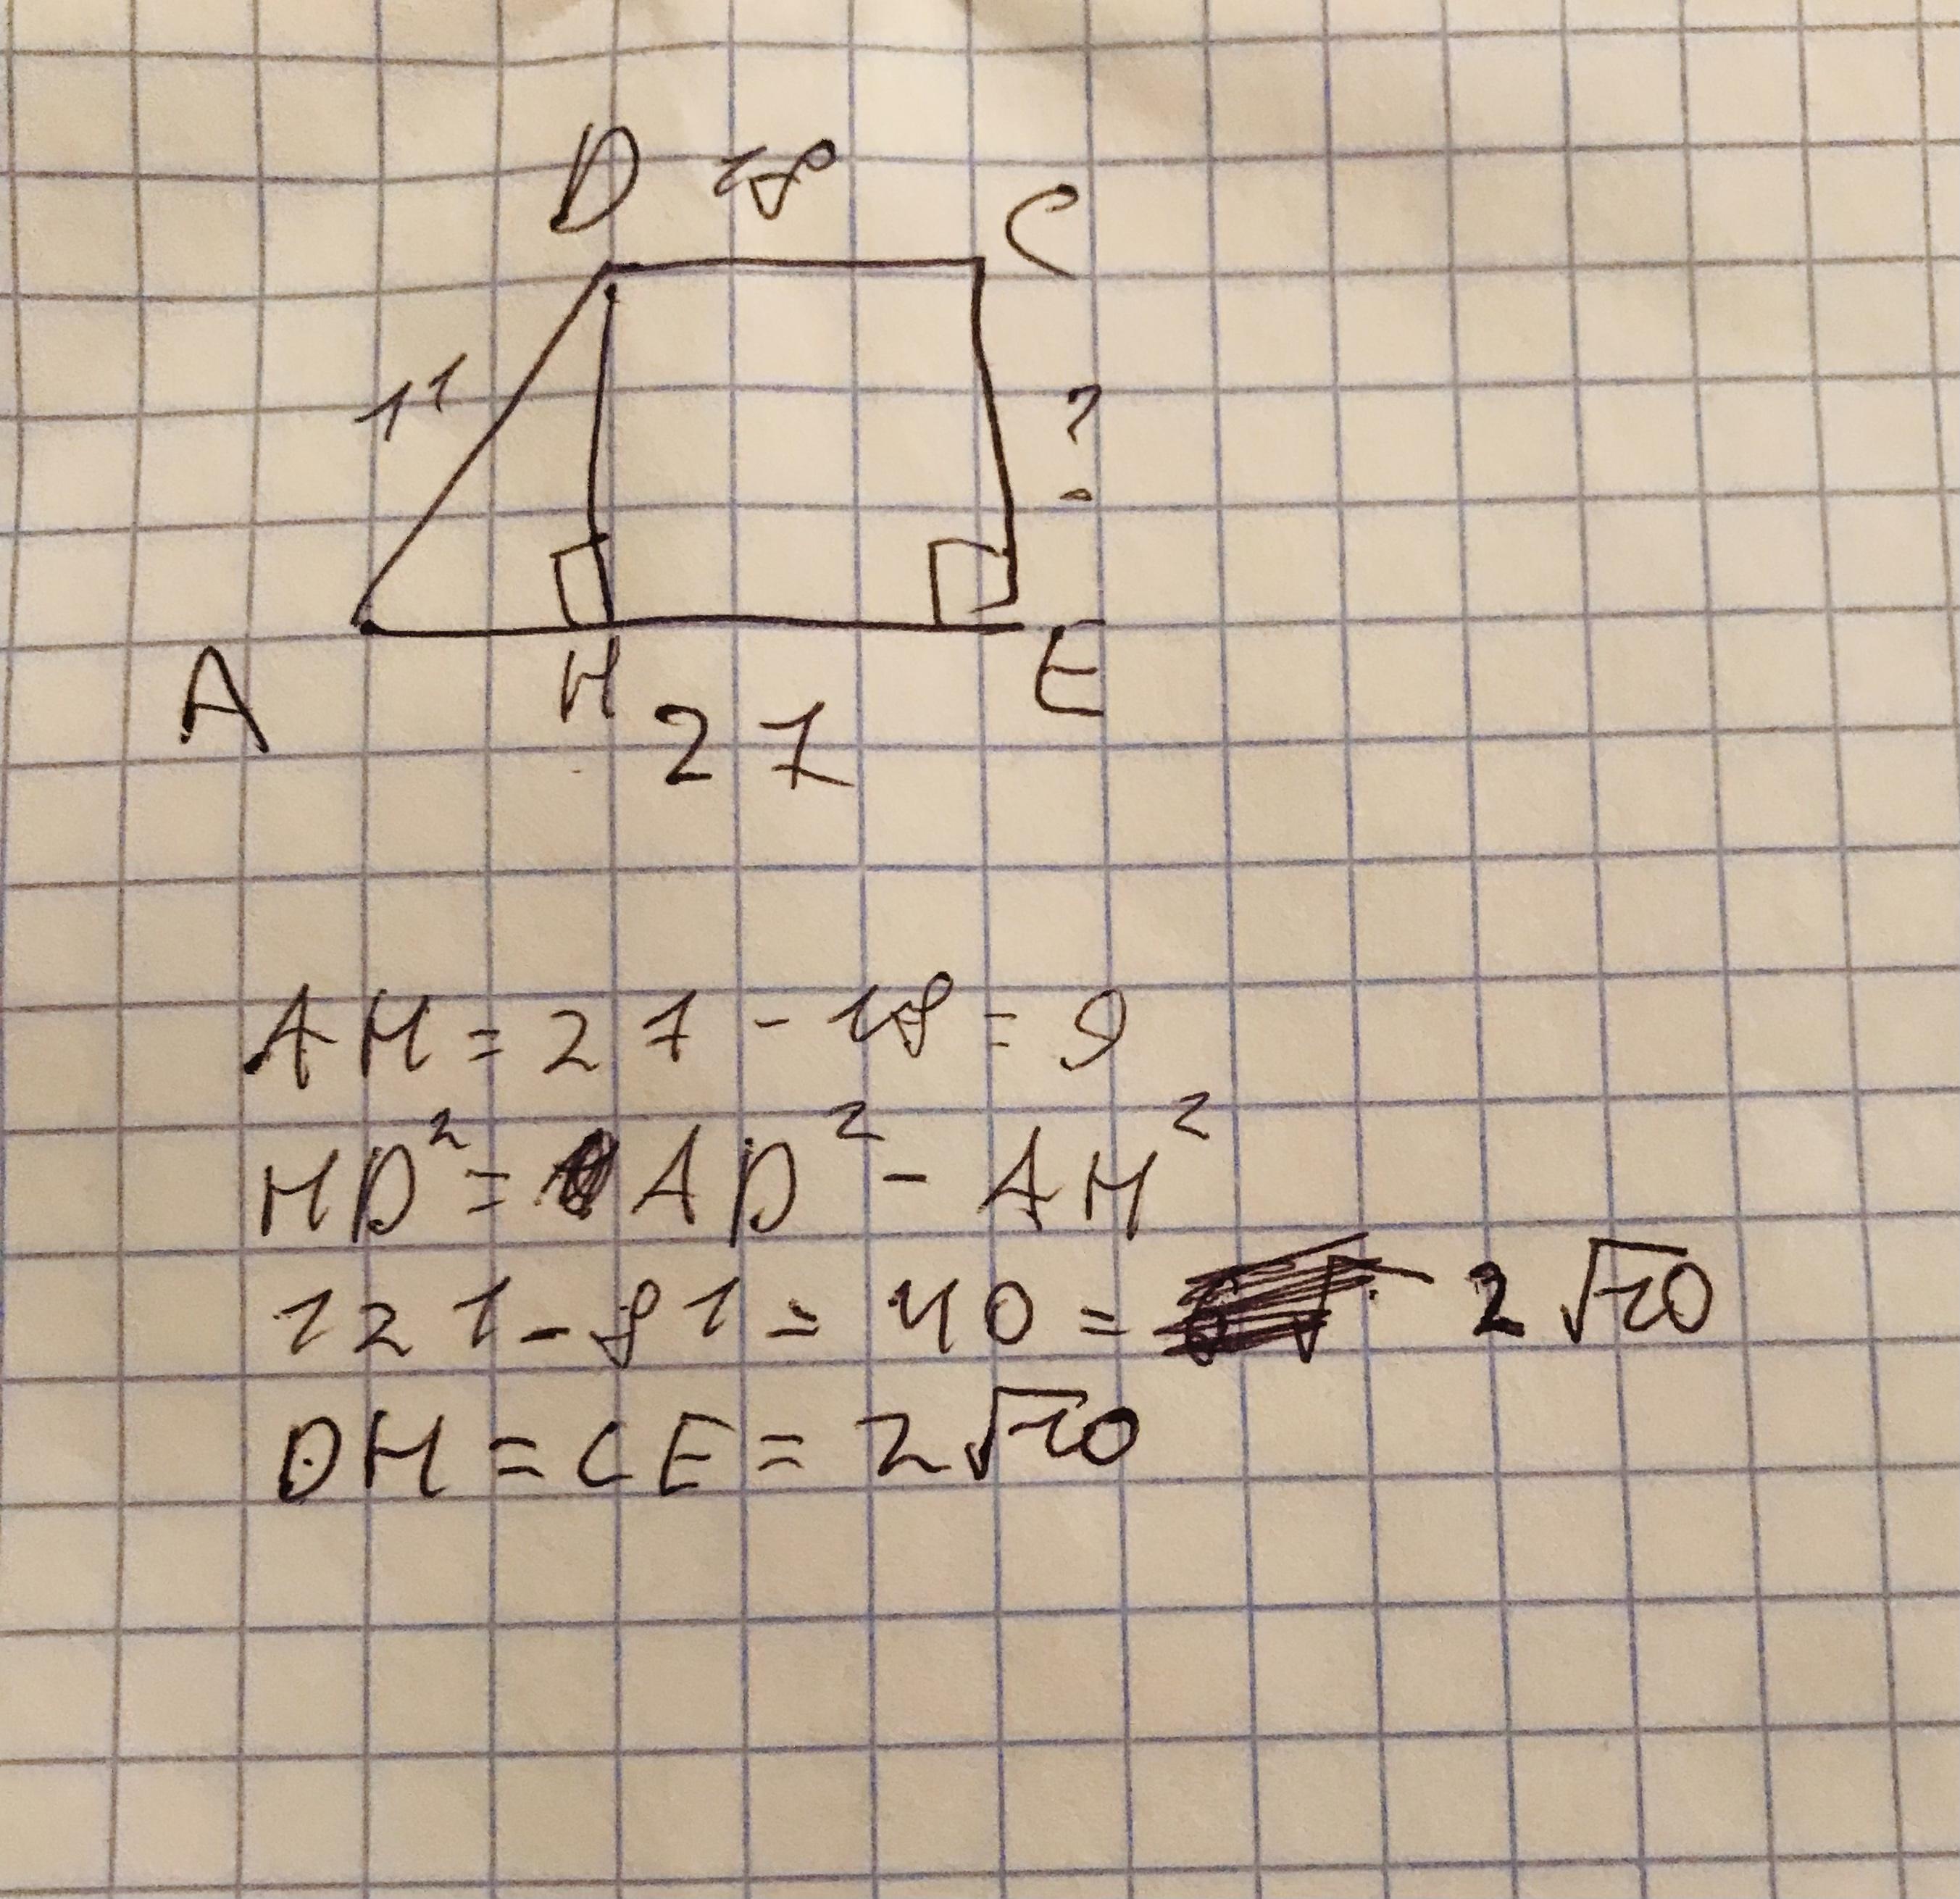 D 18 C
11 ?
A H E
27
AH = 27 - 18 = 9
HD² = AD² - AH²
121 - 81 = 40 = 2√10
DH = CE = 2√10